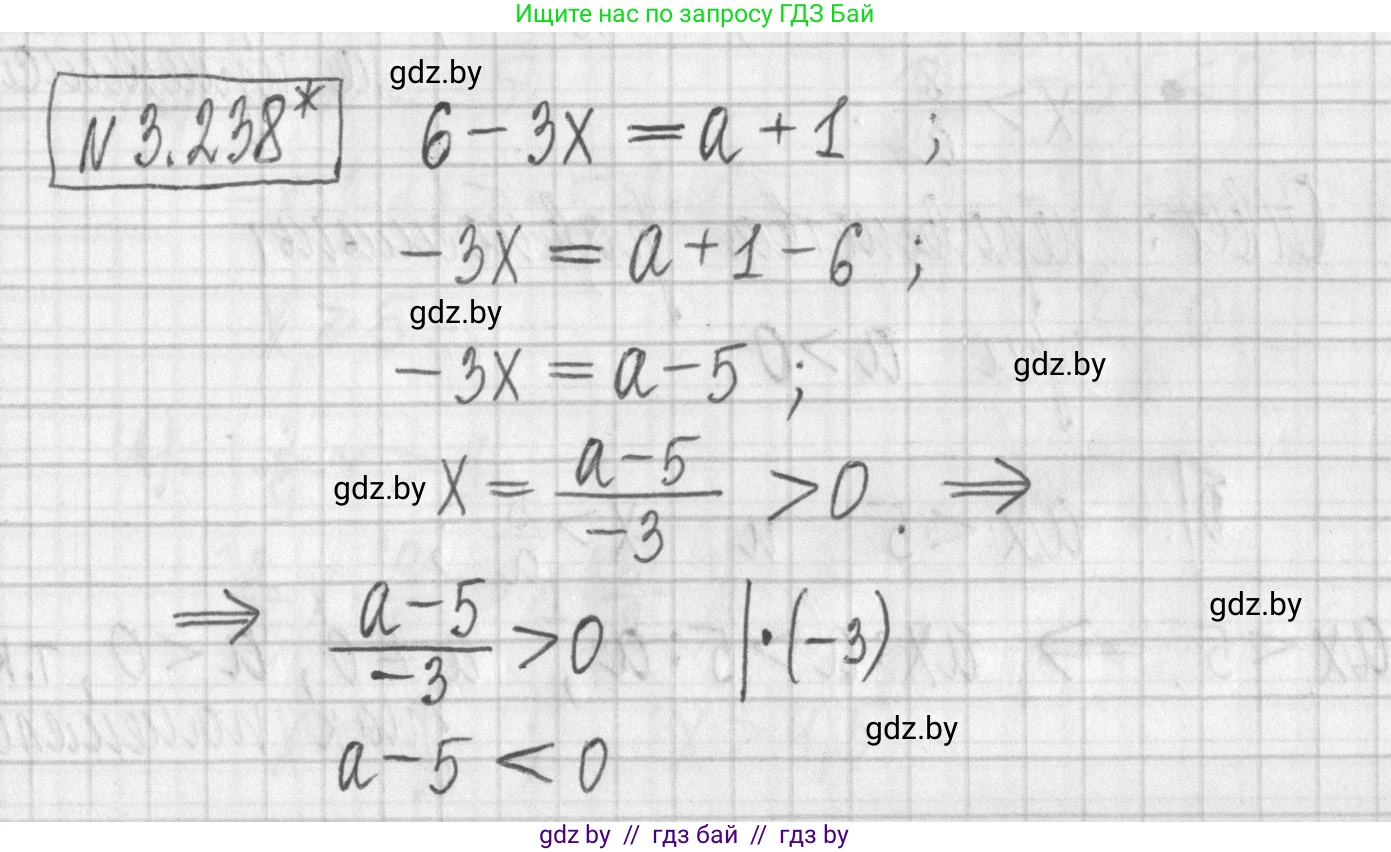 Ищите нас по запросу ГДЗ Бай
gdz.by
N 3.238* 6 - 3x = a + 1 ;
-3x = a + 1 - 6 ;
gdz.by
-3x = a - 5 ; gdz.by
gdz.by x = (a - 5)/(-3) > 0 . ⇒
⇒ (a - 5)/(-3) > 0 | · (-3) gdz.by
gdz.by
a - 5 < 0
gdz by // гдз бай // гдз by